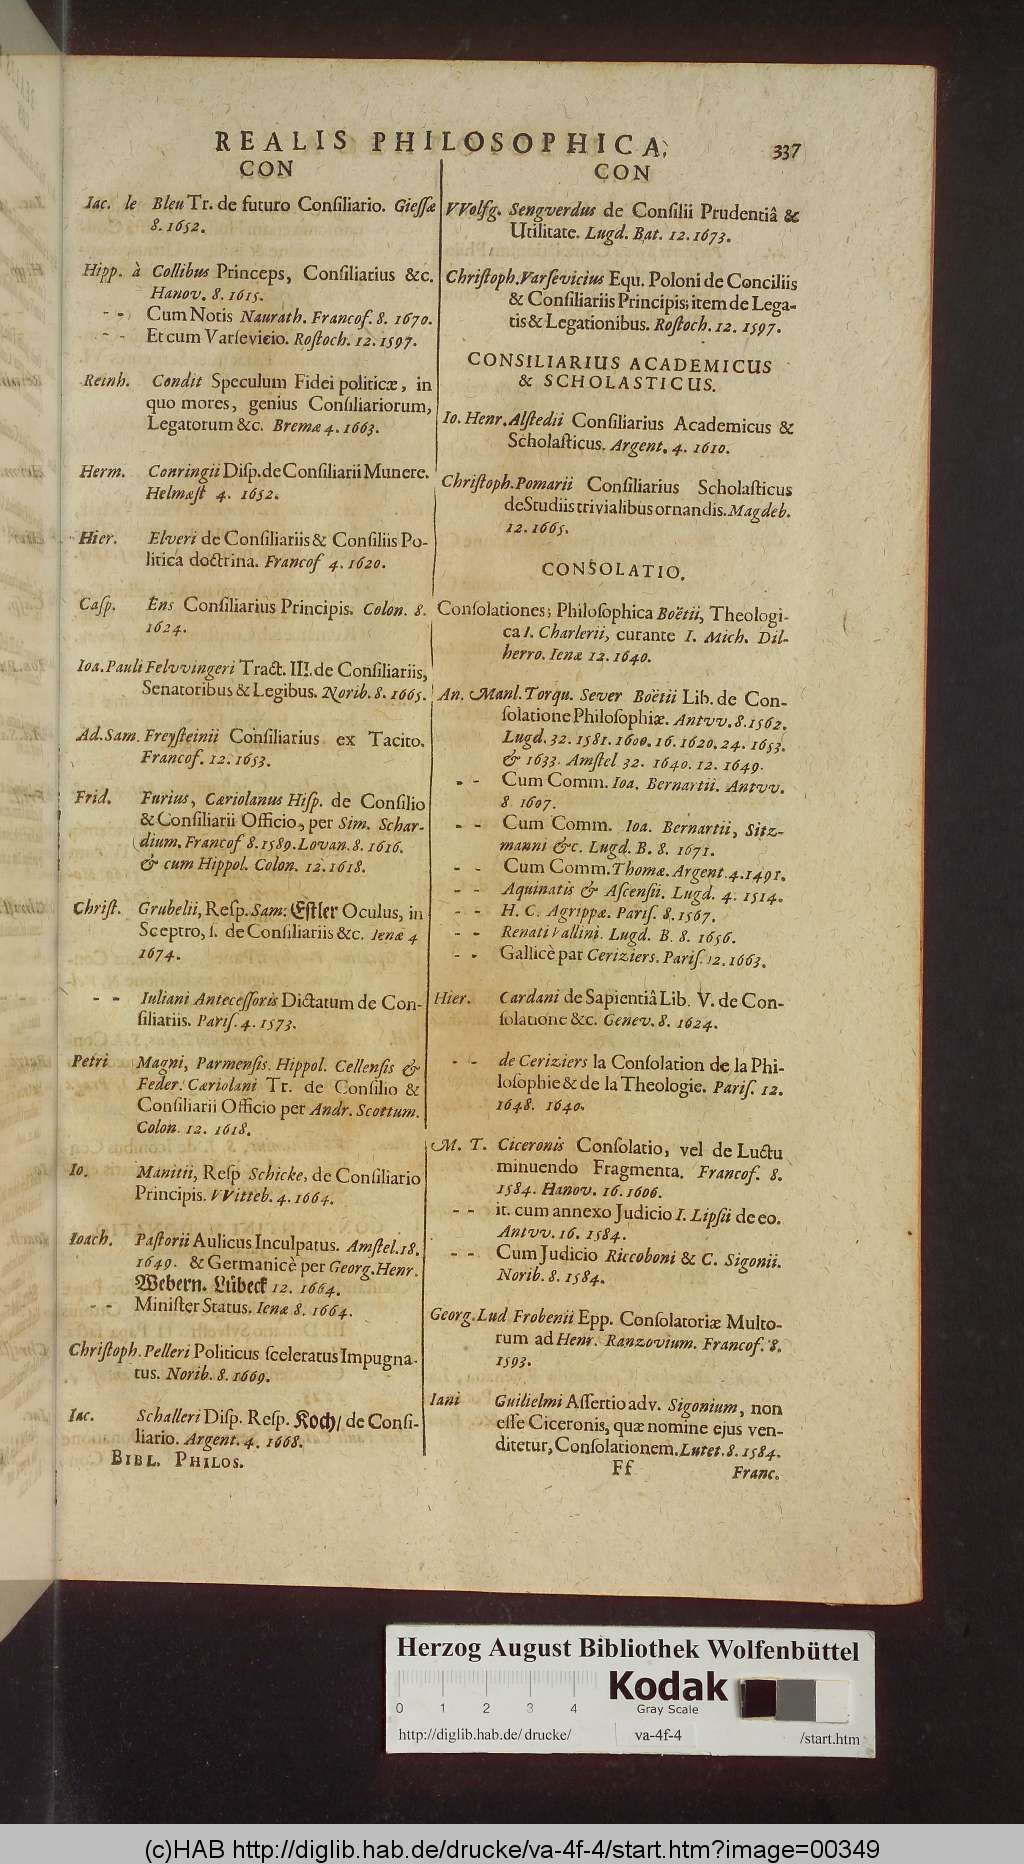 REALIS PHILOSOPHICA.
337
CON
Iac. le Bleu Tr. de futuro Conſiliario. Gieſſæ
8. 1652.
Hipp. à Collibus Princeps, Conſiliarius &c.
Hanov. 8. 1615.
- - Cum Notis Naurath. Francof. 8. 1670.
- - Et cum Varſevicio. Roſtoch. 12. 1597.
Reinh. Condit Speculum Fidei politicæ, in
quo mores, genius Conſiliariorum,
Legatorum &c. Bremæ 4. 1663.
Herm. Conringii Diſp. de Conſiliarii Munere.
Helmæſt 4. 1652.
Hier. Elveri de Conſiliariis & Conſiliis Po-
litica doctrina. Francof 4. 1620.
Caſp. Ens Conſiliarius Principis. Colon. 8.
1624.
Ioa. Pauli Felvvingeri Tract. III. de Conſiliariis,
Senatoribus & Legibus. Norib. 8. 1665.
Ad. Sam. Freyſteinii Conſiliarius ex Tacito.
Francof. 12. 1653.
Frid. Furius, Cæriolanus Hiſp. de Conſilio
& Conſiliarii Officio, per Sim. Schar-
dium. Francof 8. 1589. Lovan. 8. 1616.
& cum Hippol. Colon. 12. 1618.
Chriſt. Grubelii, Reſp. Sam. Eſtſer Oculus, in
Sceptro, ſ. de Conſiliariis &c. Ienæ 4
1674.
- - Iuliani Anteceſſoris Dictatum de Con-
ſiliariis. Pariſ. 4. 1573.
Petri Magni, Parmenſis. Hippol. Cellenſis &
Feder. Cæriolani Tr. de Conſilio &
Conſiliarii Officio per Andr. Scottum.
Colon. 12. 1618.
Io. Manitii, Reſp Schicke, de Conſiliario
Principis. VVitteb. 4. 1664.
Ioach. Paſtorii Aulicus Inculpatus. Amſtel. 18.
1649. & Germanicè per Georg. Henr.
Webern. Lübeck 12. 1664.
- - Miniſter Status. Ienæ 8. 1664.
Chriſtoph. Pelleri Politicus ſceleratus Impugna-
tus. Norib. 8. 1669.
Iac. Schalleri Diſp. Reſp. Koch/ de Conſi-
liario. Argent. 4. 1668.
BIBL. PHILOS.
CON
VVolfg. Sengverdus de Conſilii Prudentiâ &
Utilitate. Lugd. Bat. 12. 1673.
Chriſtoph. Varſevicius Equ. Poloni de Conciliis
& Conſiliariis Principis; item de Lega-
tis & Legationibus. Roſtoch. 12. 1597.
CONSILIARIUS ACADEMICUS
& SCHOLASTICUS.
Io. Henr. Alſtedii Conſiliarius Academicus &
Scholaſticus. Argent. 4. 1610.
Chriſtoph. Pomarii Conſiliarius Scholaſticus
de Studiis trivialibus ornandis. Magdeb.
12. 1665.
CONSOLATIO.
Conſolationes; Philoſophica Boëtii, Theologi-
ca I. Charlerii, curante I. Mich. Dil-
herro. Ienæ 12. 1640.
An. Manl. Torqu. Sever Boëtii Lib. de Con-
ſolatione Philoſophiæ. Antvv. 8. 1562.
Lugd. 32. 1581. 1600. 16. 1620. 24. 1653.
& 1633. Amſtel 32. 1640. 12. 1649.
- - Cum Comm. Ioa. Bernartii. Antvv.
8 1607.
- - Cum Comm. Ioa. Bernartii, Sitz-
manni &c. Lugd. B. 8. 1671.
- - Cum Comm. Thomæ. Argent. 4. 1491.
- - Aquinatis & Aſcenſii. Lugd. 4. 1514.
- - H. C. Agrippæ. Pariſ. 8. 1567.
- - Renati Vallini. Lugd. B. 8. 1656.
- - Gallicè par Ceriziers. Pariſ. 12. 1663.
Hier. Cardani de Sapientiâ Lib. V. de Con-
ſolatione &c. Genev. 8. 1624.
- - de Ceriziers la Conſolation de la Phi-
loſophie & de la Theologie. Pariſ. 12.
1648. 1640.
M. T. Ciceronis Conſolatio, vel de Luctu
minuendo Fragmenta. Francof. 8.
1584. Hanov. 16. 1606.
- - it. cum annexo Judicio I. Lipſii de eo.
Antvv. 16. 1584.
- - Cum Judicio Riccoboni & C. Sigonii.
Norib. 8. 1584.
Georg. Lud Frobenii Epp. Conſolatoriæ Multo-
rum ad Henr. Ranzovium. Francof. 8.
1593.
Iani Guilielmi Aſſertio adv. Sigonium, non
eſſe Ciceronis, quæ nomine ejus ven-
ditetur, Conſolationem. Lutet. 8. 1584.
Ff
Franc.
Herzog August Bibliothek Wolfenbüttel
0 1 2 3 4
Kodak
Gray Scale
http://diglib.hab.de/drucke/ va-4f-4 /start.htm
(c)HAB http://diglib.hab.de/drucke/va-4f-4/start.htm?image=00349